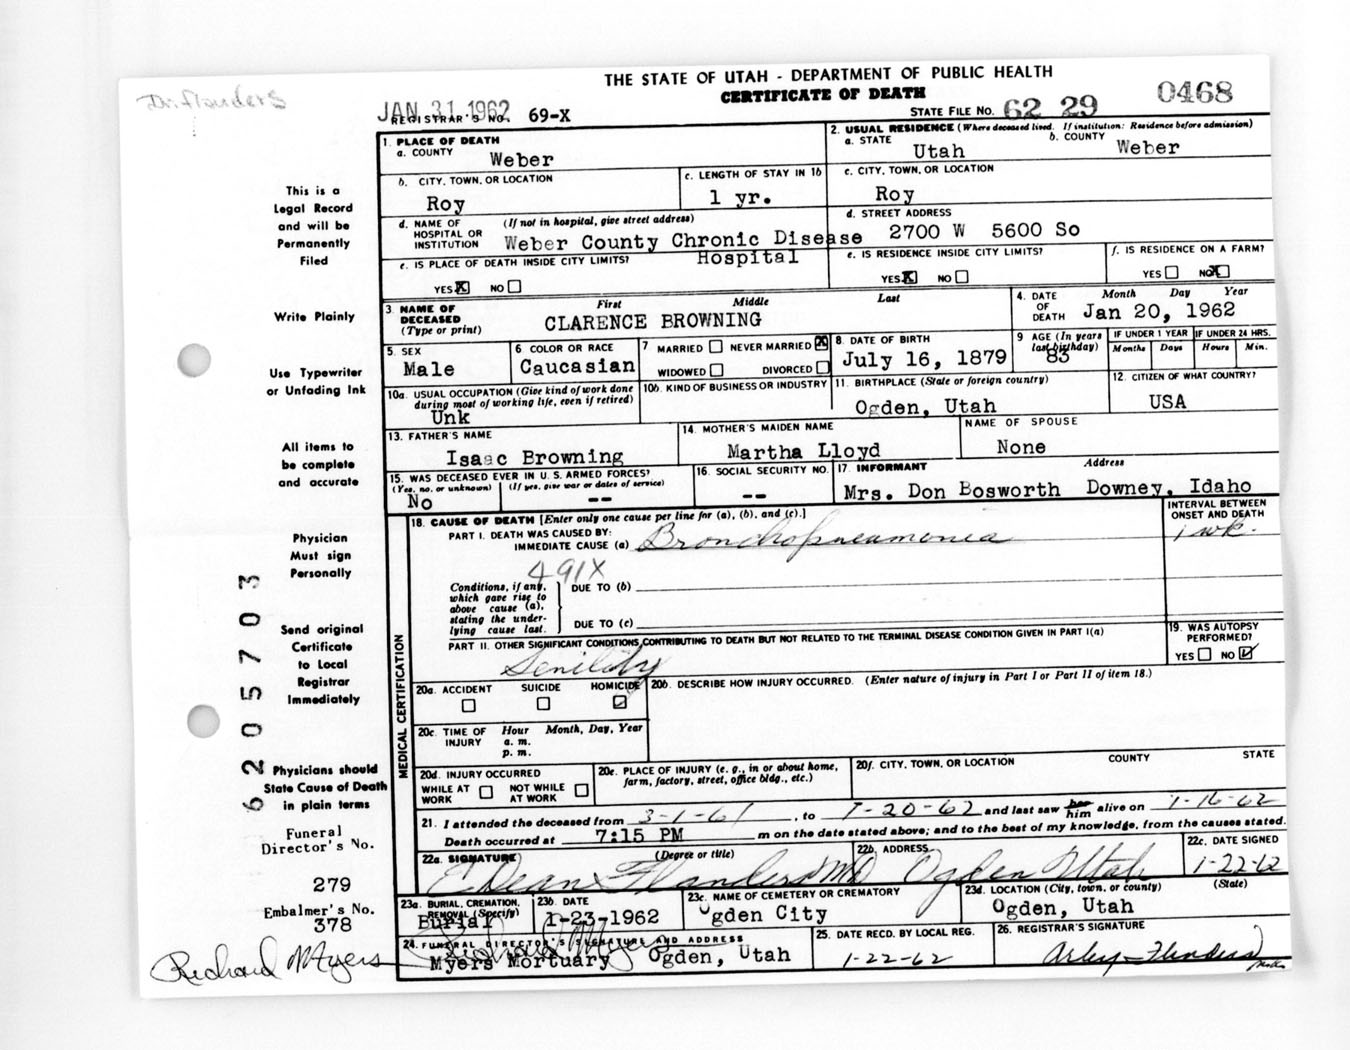 THE STATE OF UTAH - DEPARTMENT OF PUBLIC HEALTH
CERTIFICATE OF DEATH
Dr. Flanders
JAN 31 1962
REGISTRAR'S NO. 69-X
STATE FILE NO. 62 29 0468
1. PLACE OF DEATH
a. COUNTY Weber
2. USUAL RESIDENCE (Where deceased lived. If institution: Residence before admission)
a. STATE Utah b. COUNTY Weber
b. CITY, TOWN, OR LOCATION Roy
c. LENGTH OF STAY IN 1b 1 yr.
c. CITY, TOWN, OR LOCATION Roy
d. NAME OF HOSPITAL OR INSTITUTION (If not in hospital, give street address)
Weber County Chronic Disease Hospital
d. STREET ADDRESS 2700 W 5600 So
e. IS PLACE OF DEATH INSIDE CITY LIMITS?
YES X NO
e. IS RESIDENCE INSIDE CITY LIMITS?
YES X NO
f. IS RESIDENCE ON A FARM?
YES NO X
3. NAME OF DECEASED (Type or print)
First Middle Last
CLARENCE BROWNING
4. DATE OF DEATH Month Day Year
Jan 20, 1962
5. SEX Male
6. COLOR OR RACE Caucasian
7 MARRIED NEVER MARRIED X
WIDOWED DIVORCED
8. DATE OF BIRTH July 16, 1879
9 AGE (In years last birthday) 83
IF UNDER 1 YEAR Months Days
IF UNDER 24 HRS. Hours Min.
10a. USUAL OCCUPATION (Give kind of work done during most of working life, even if retired)
Unk
10b. KIND OF BUSINESS OR INDUSTRY
11. BIRTHPLACE (State or foreign country)
Ogden, Utah
12. CITIZEN OF WHAT COUNTRY?
USA
13. FATHER'S NAME
Isaac Browning
14. MOTHER'S MAIDEN NAME
Martha Lloyd
NAME OF SPOUSE
None
15. WAS DECEASED EVER IN U. S. ARMED FORCES?
(Yes, no, or unknown) (If yes, give war or dates of service)
No --
16. SOCIAL SECURITY NO.
--
17. INFORMANT Address
Mrs. Don Bosworth Downey, Idaho
MEDICAL CERTIFICATION
18. CAUSE OF DEATH [Enter only one cause per line for (a), (b), and (c).]
INTERVAL BETWEEN ONSET AND DEATH
PART I. DEATH WAS CAUSED BY:
IMMEDIATE CAUSE (a) Bronchopneumonia 1 wk.
491X
Conditions, if any, which gave rise to above cause (a), stating the underlying cause last.
DUE TO (b)
DUE TO (c)
PART II. OTHER SIGNIFICANT CONDITIONS CONTRIBUTING TO DEATH BUT NOT RELATED TO THE TERMINAL DISEASE CONDITION GIVEN IN PART I(a)
Senility
19. WAS AUTOPSY PERFORMED?
YES NO
20a. ACCIDENT SUICIDE HOMICIDE
20b. DESCRIBE HOW INJURY OCCURRED. (Enter nature of injury in Part I or Part II of item 18.)
20c. TIME OF INJURY Hour Month, Day, Year
a. m.
p. m.
20d. INJURY OCCURRED
WHILE AT WORK NOT WHILE AT WORK
20e. PLACE OF INJURY (e. g., in or about home, farm, factory, street, office bldg., etc.)
20f. CITY, TOWN, OR LOCATION COUNTY STATE
21. I attended the deceased from 3-1-61, to 1-20-62 and last saw her him alive on 1-16-62
Death occurred at 7:15 PM m on the date stated above; and to the best of my knowledge, from the causes stated.
22a. SIGNATURE (Degree or title)
E Dean Flanders MD
22b. ADDRESS
Ogden Utah
22c. DATE SIGNED
1-22-62
23a. BURIAL, CREMATION, REMOVAL (Specify)
Burial
23b. DATE
1-23-1962
23c. NAME OF CEMETERY OR CREMATORY
Ogden City
23d. LOCATION (City, town, or county) (State)
Ogden, Utah
24. FUNERAL DIRECTOR'S SIGNATURE AND ADDRESS
Richard Myers
Myers Mortuary Ogden, Utah
25. DATE RECD. BY LOCAL REG.
1-22-62
26. REGISTRAR'S SIGNATURE
This is a
Legal Record
and will be
Permanently
Filed
Write Plainly
Use Typewriter
or Unfading Ink
All items to
be complete
and accurate
Physician
Must sign
Personally
Send original
Certificate
to Local
Registrar
Immediately
Physicians should
State Cause of Death
in plain terms
Funeral
Director's No.
279
Embalmer's No.
378
Richard Myers
6205703